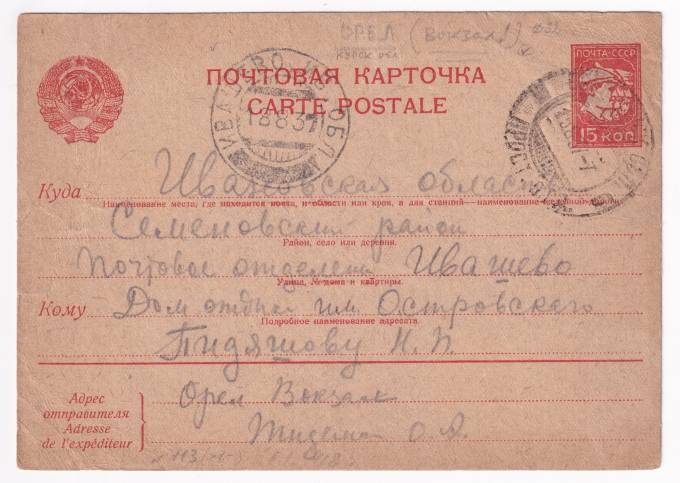 ОРЕЛ (Вокзал)
КУРСК ОБЛ
ПОЧТОВАЯ КАРТОЧКА
CARTE POSTALE
ПОЧТА·СССР
15 КОП
ИВАШЕВО ИВ. ОБЛ.
18 8 37
Куда Ивановская область
Наименование места, где находится почта, и области или края, а для станций—наименование железной дороги
Семеновский район
Район, село или деревня.
Почтовое отделен Ивашево
Улица, № дома и квартиры.
Кому Дом отдыха им. Островского
Подробное наименование адресата
Пидяшову Н. П.
Адрес отправителя
Adresse de l'expéditeur
Орел Вокзал
О. А.